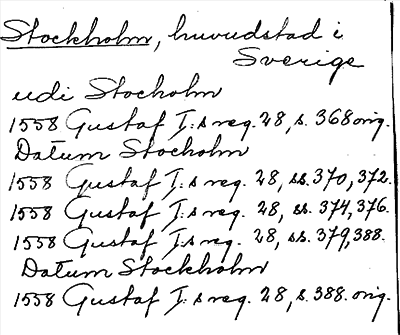 Stockholm, huvudstad i
Sverige
udi Stocholm
1558 Gustaf I:s reg. 28, s. 368 orig.
Datum Stocholm
1558 Gustaf I:s reg. 28, ss. 370, 372.
1558 Gustaf I:s reg. 28, ss. 374, 376.
1558 Gustaf I:s reg. 28, ss. 379, 388.
Datum Stockholm
1558 Gustaf I:s reg. 28, s. 388. orig.